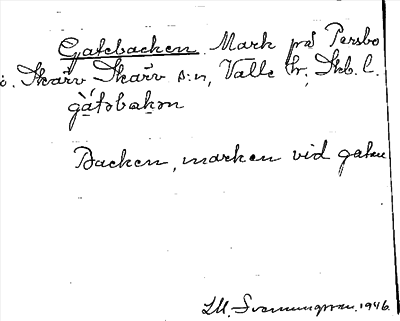 Gatebacken. Mark på Persbo
ö. Skärv Skärv s:n, Valle hr; Skb. l.
gàtəbakən
Backen, marken vid gaten
1946.